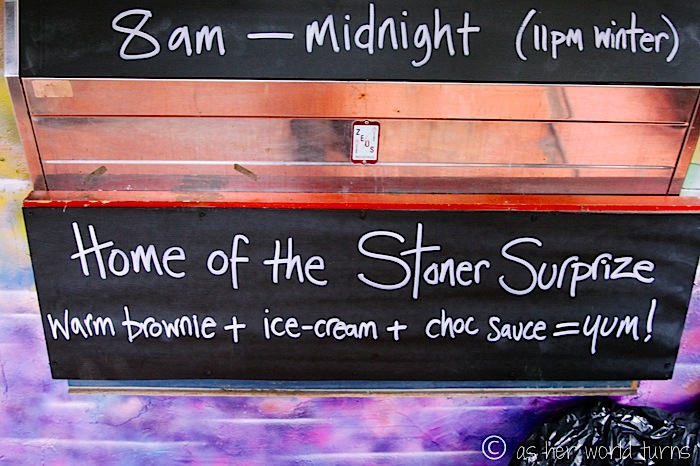 8am – midnight (11pm winter)
ZEUS
Home of the Stoner Surprize
warm brownie + ice-cream + choc sauce = yum!
© as her world turns